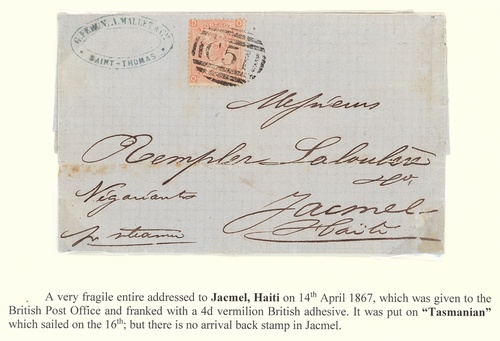 SAINT-THOMAS
C51
Messieurs
Kempler
Négociants
Jacmel
pr steamer
Haïti
A very fragile entire addressed to Jacmel, Haiti on 14th April 1867, which was given to the
British Post Office and franked with a 4d vermilion British adhesive. It was put on “Tasmanian”
which sailed on the 16th; but there is no arrival back stamp in Jacmel.